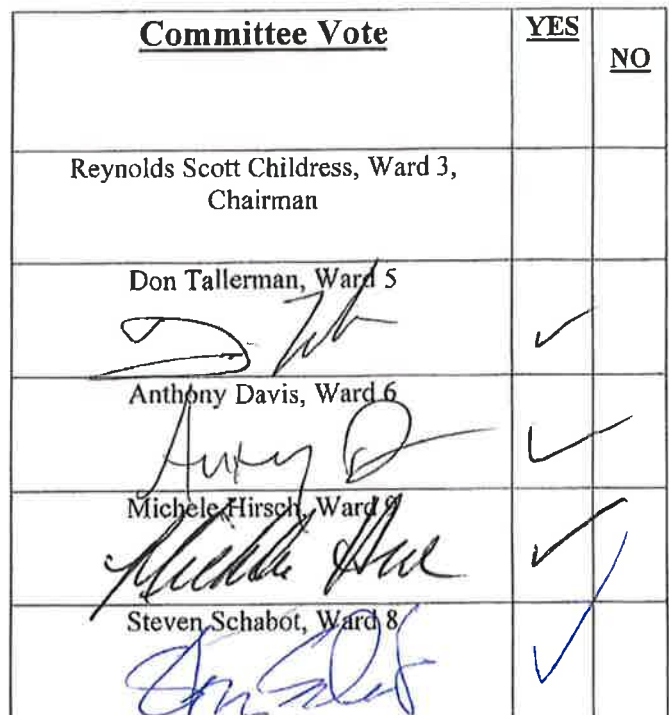 Committee Vote YES NO
Reynolds Scott Childress, Ward 3,
Chairman
Don Tallerman, Ward 5
✓
Anthony Davis, Ward 6
✓
Michele Hirsch, Ward 9
✓
Steven Schabot, Ward 8
✓